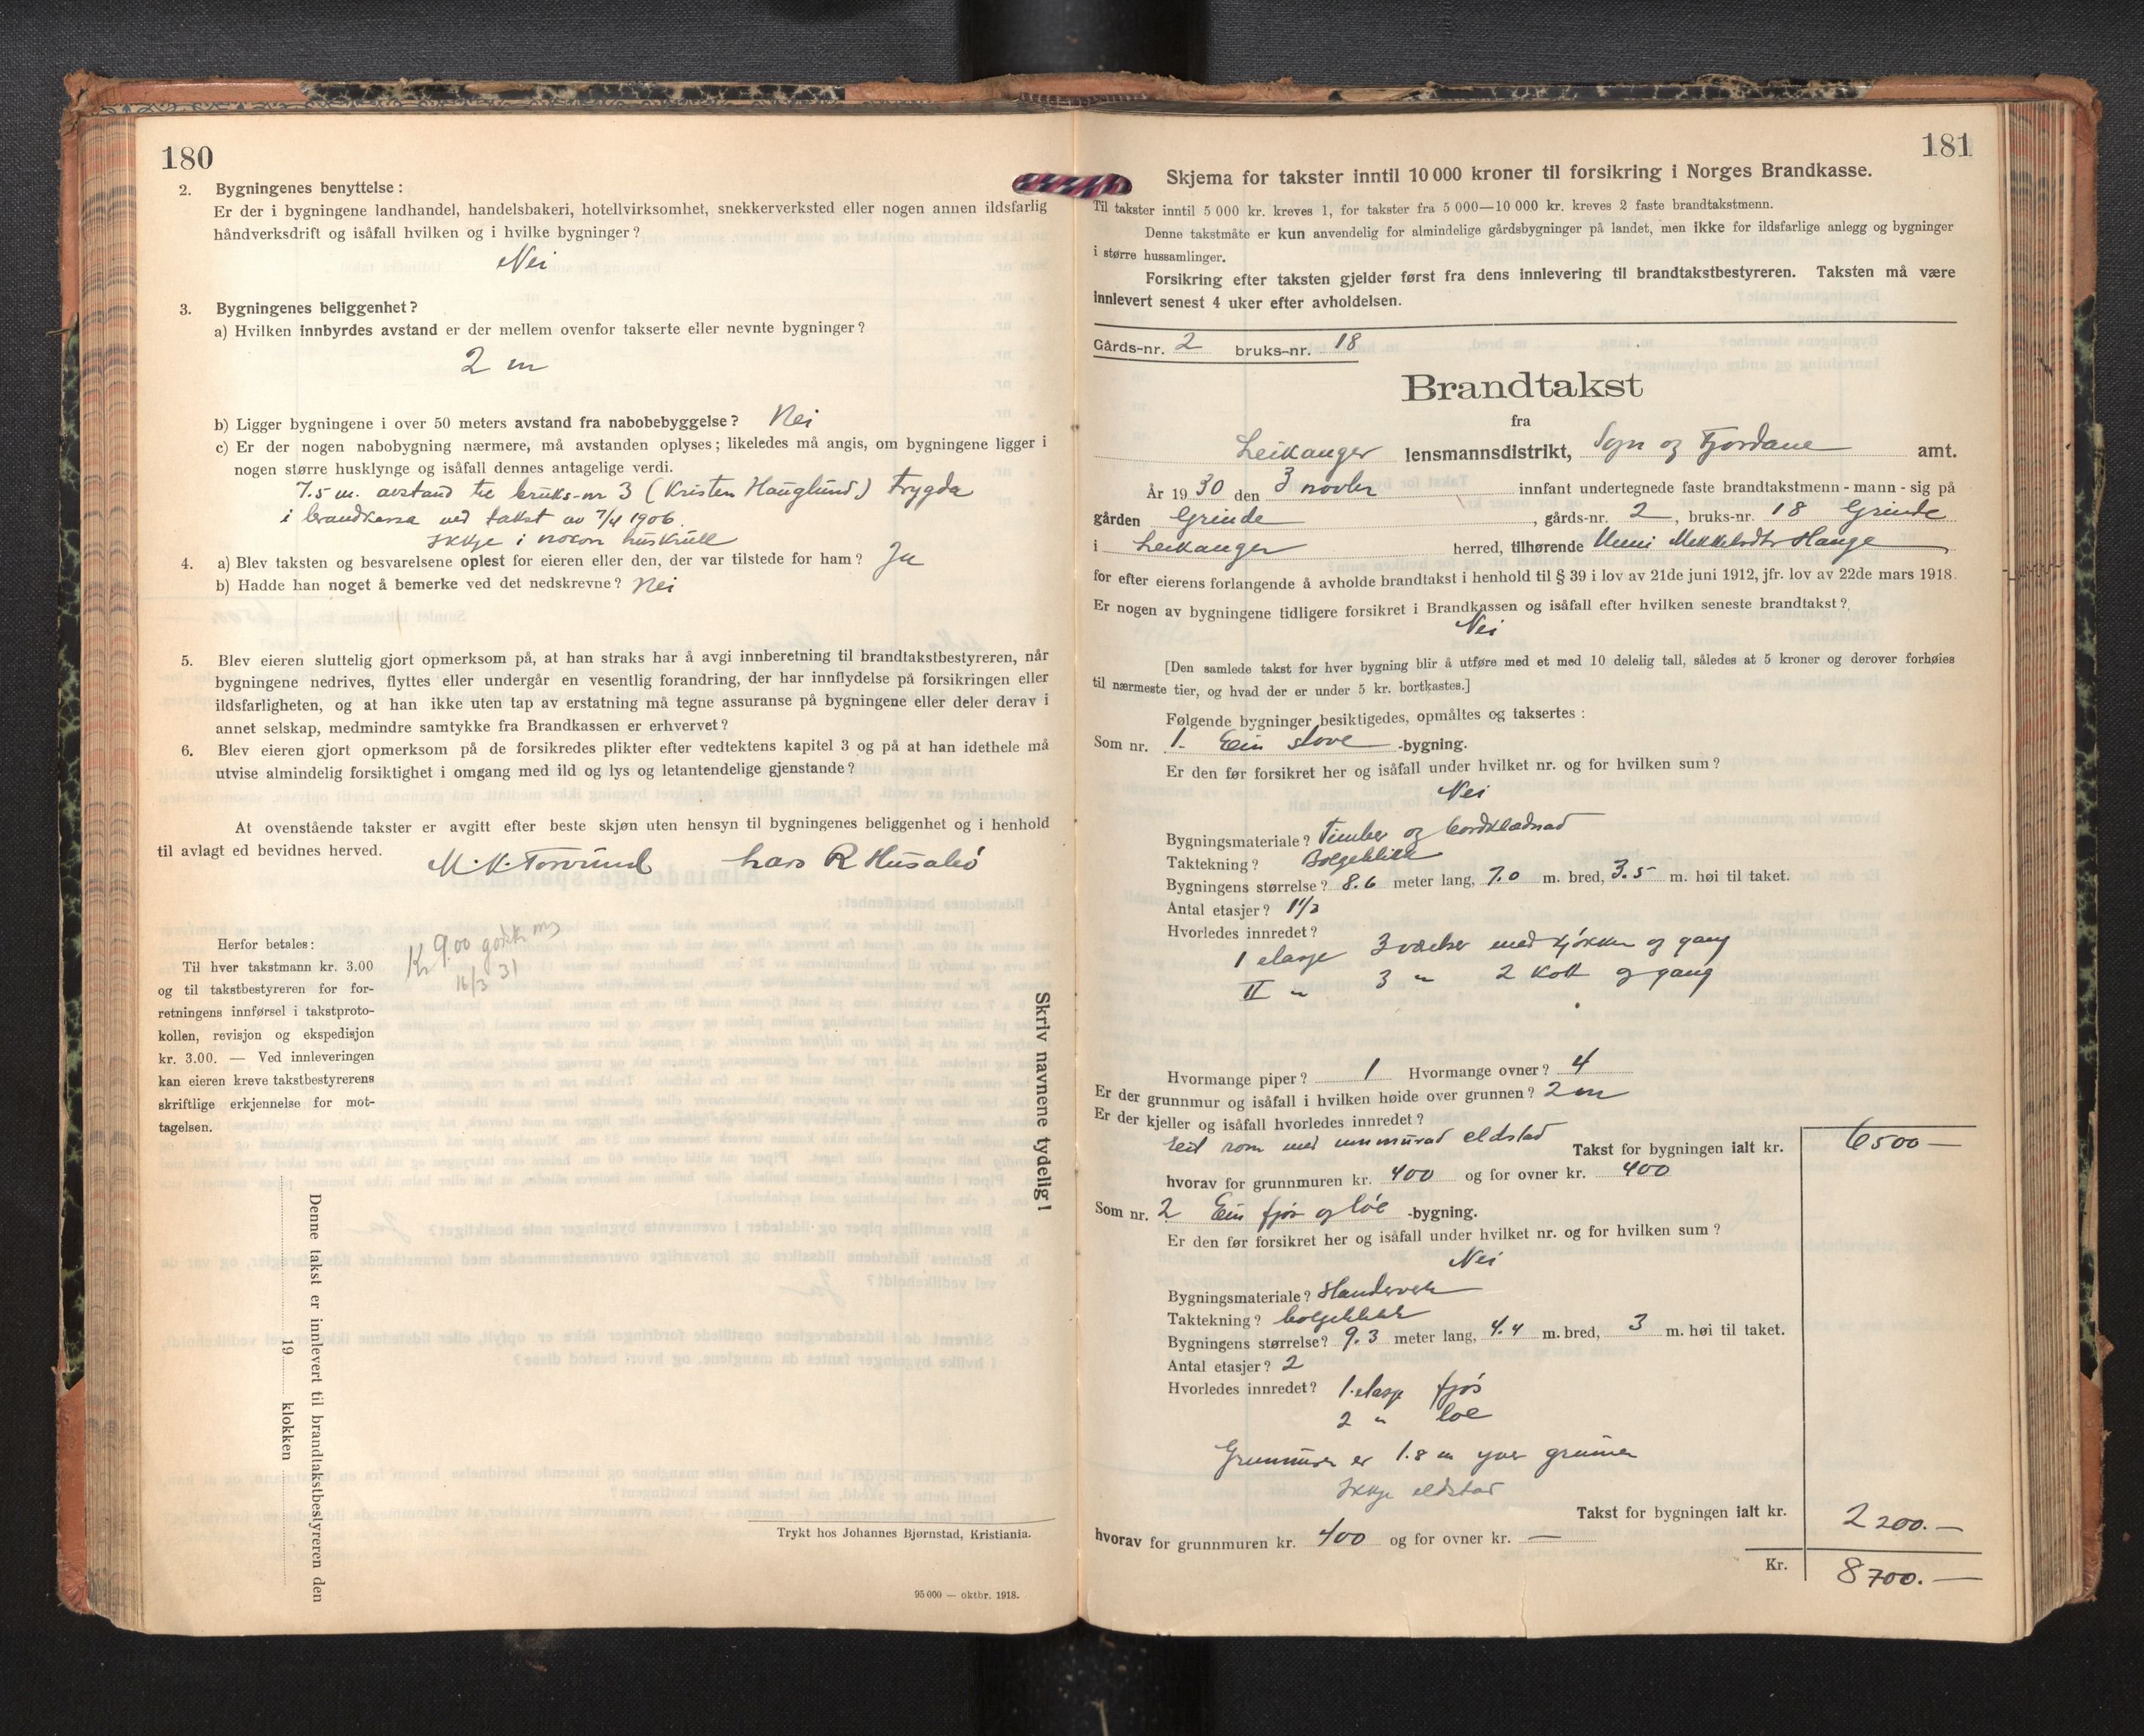 180
2. Bygningenes benyttelse:
Er der i bygningene landhandel, handelsbakeri, hotellvirksomhet, snekkerverksted eller nogen annen ildsfarlig
håndverksdrift og isåfall hvilken og i hvilke bygninger?
Nei
3. Bygningenes beliggenhet?
a) Hvilken innbyrdes avstand er der mellem ovenfor takserte eller nevnte bygninger?
2 m
b) Ligger bygningene i over 50 meters avstand fra nabobebyggelse? Nei
c) Er der nogen nabobygning nærmere, må avstanden oplyses; likeledes må angis, om bygningene ligger i
nogen større husklynge og isåfall dennes antagelige verdi.
7.5 m. avstand til bruks-nr 3 (Kristen Hauglund) Trygda
i brandkassa ved takst av 7/4 1906.
Ikkje i nokon huskrull
4. a) Blev taksten og besvarelsene oplest for eieren eller den, der var tilstede for ham? Ja
b) Hadde han noget å bemerke ved det nedskrevne? Nei
5. Blev eieren sluttelig gjort opmerksom på, at han straks har å avgi innberetning til brandtakstbestyreren, når
bygningene nedrives, flyttes eller undergår en vesentlig forandring, der har innflydelse på forsikringen eller
ildsfarligheten, og at han ikke uten tap av erstatning må tegne assuranse på bygningene eller deler derav i
annet selskap, medmindre samtykke fra Brandkassen er erhvervet?
6. Blev eieren gjort opmerksom på de forsikredes plikter efter vedtektens kapitel 3 og på at han idethele må
utvise almindelig forsiktighet i omgang med ild og lys og letantendelige gjenstande?
At ovenstående takster er avgitt efter beste skjøn uten hensyn til bygningenes beliggenhet og i henhold
til avlagt ed bevidnes herved.
M. K. Torvund Lars R Husabø
Herfor betales:
Til hver takstmann kr. 3.00
og til takstbestyreren for for-
retningens innførsel i takstproto-
kollen, revisjon og ekspedisjon
kr. 3.00. — Ved innleveringen
kan eieren kreve takstbestyrerens
skriftlige erkjennelse for mot-
tagelsen.
Kr 9.00 godk
16/3 31
Skriv navnene tydelig!
Denne takst er innlevert til brandtakstbestyreren den
19 klokken
Trykt hos Johannes Bjørnstad, Kristiania.
95 000 — oktbr. 1918.
181
Skjema for takster inntil 10 000 kroner til forsikring i Norges Brandkasse.
Til takster inntil 5 000 kr. kreves 1, for takster fra 5 000—10 000 kr. kreves 2 faste brandtakstmenn.
Denne takstmåte er kun anvendelig for almindelige gårdsbygninger på landet, men ikke for ildsfarlige anlegg og bygninger
i større hussamlinger.
Forsikring efter taksten gjelder først fra dens innlevering til brandtakstbestyreren. Taksten må være
innlevert senest 4 uker efter avholdelsen.
Gårds-nr. 2 bruks-nr. 18
Brandtakst
fra
Leikanger lensmannsdistrikt, Sogn og Fjordane amt.
År 1930 den 3 novbr innfant undertegnede faste brandtakstmenn - mann - sig på
gården Grinde, gårds-nr. 2, bruks-nr. 18 Grinde
i Leikanger herred, tilhørende
for efter eierens forlangende å avholde brandtakst i henhold til § 39 i lov av 21de juni 1912, jfr. lov av 22de mars 1918.
Er nogen av bygningene tidligere forsikret i Brandkassen og isåfall efter hvilken seneste brandtakst?
Nei
[Den samlede takst for hver bygning blir å utføre med et med 10 delelig tall, således at 5 kroner og derover forhøies
til nærmeste tier, og hvad der er under 5 kr. bortkastes.]
Følgende bygninger besiktigedes, opmåltes og taksertes:
Som nr. 1. Ein stove -bygning.
Er den før forsikret her og isåfall under hvilket nr. og for hvilken sum?
Nei
Bygningsmateriale? Timber og bordklædnad
Taktekning? Bolgeblikk
Bygningens størrelse? 8.6 meter lang, 7.0 m. bred, 3.5 m. høi til taket.
Antal etasjer? 1½
Hvorledes innredet?
1 etasje 3 værelser med kjøkken og gang
II " 3 " 2 kott og gang
Hvormange piper? 1 Hvormange ovner? 4
Er der grunnmur og isåfall i hvilken høide over grunnen? 2 m
Er der kjeller og isåfall hvorledes innredet?
Eit rom med innmurad eldstad Takst for bygningen ialt kr. 6500 —
hvorav for grunnmuren kr. 400 og for ovner kr. 400
Som nr. 2 Ein fjos og løe -bygning.
Er den før forsikret her og isåfall under hvilket nr. og for hvilken sum?
Nei
Bygningsmateriale? Standerverk
Taktekning? bolgeblikk
Bygningens størrelse? 9.3 meter lang, 4.4 m. bred, 3 m. høi til taket.
Antal etasjer? 2
Hvorledes innredet? 1. etasje fjøs
2 " løe
Grunnmuren er 1.8 m yver grunnen
Ikkje eldstad
Takst for bygningen ialt kr. 2200.—
hvorav for grunnmuren kr. 400 og for ovner kr. —
Kr. 8700.—